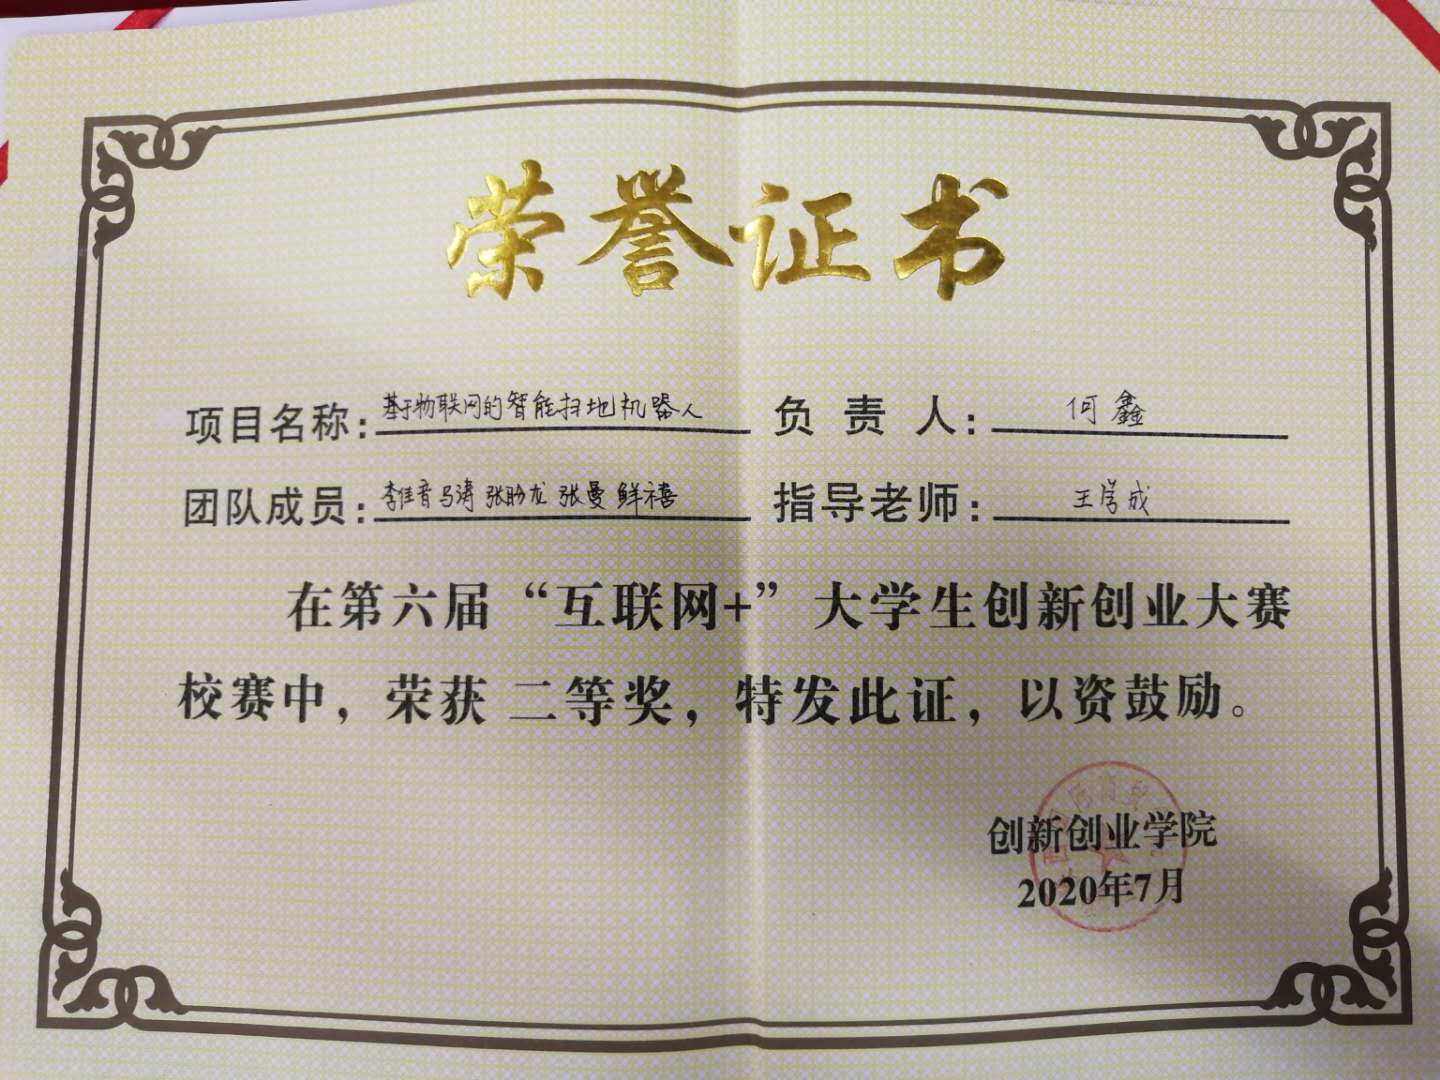 荣誉证书
项目名称：基于物联网的智能扫地机器人 负责人：何鑫
团队成员：李佳音 马涛 张盼龙 张曼 鲜禧 指导老师：王学成
在第六届“互联网+”大学生创新创业大赛
校赛中，荣获 二等奖，特发此证，以资鼓励。
创新创业学院
2020年7月